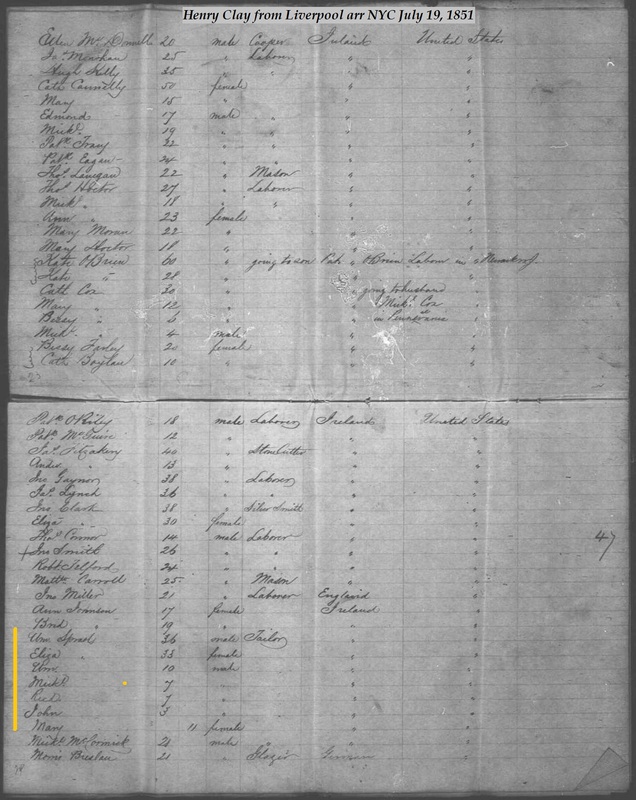 Henry Clay from Liverpool arr NYC July 19, 1851
20 male Cooper Ireland United States
Jas Meachan 25 " Labour " "
Hugh Kelly 35 " " " "
Cath Connelly 50 female " "
Mary 15 " " "
Edmond 17 male " " "
Michl 19 " " " "
Patk 32 " " " "
Patk Eagan 24 " " " "
Thos 22 " Mason " "
Thos Hoctor 27 " Labour " "
Michl " 18 " " " "
Ann " 23 female " "
Mary Moran 22 " " "
Mary Hoctor 18 " " "
Kate O'Brien 60 " going to son Pat O'Brien Labour in
Kate " 28 " " "
Cath Cox 30 " going to husband
Mary " 12 " Michl Cox
Bessy " 6 " in
Michl " 4 male " "
Bessy 20 female " "
Cath Boylan 10 " " "
Patk O'Riley 18 male Laborer Ireland United States
Patk McGuire 12 " " "
Jas 40 " Stone Cutter " "
" 13 " " "
Jno Gaynor 38 " Laborer " "
Jas Lynch 36 " " " "
Jno Clark 38 " Silver Smith " "
Eliza " 30 female " "
Thos Connor 14 male Laborer " " 47
Jno Smith 26 " " " "
Robt Telford 24 " " " "
Matth Carroll 25 " Mason " "
Jno Miller 21 " Laborer England "
Ann 17 female Ireland "
Brid " 19 " " "
Wm 36 male Tailor " "
Eliza " 33 female " "
Wm 10 male " "
Michl 7 " " "
Rich 7 " " "
John 3 " " "
Mary 11 female " "
Michl McCormick 21 male " " "
Morris 21 " Glazier German "